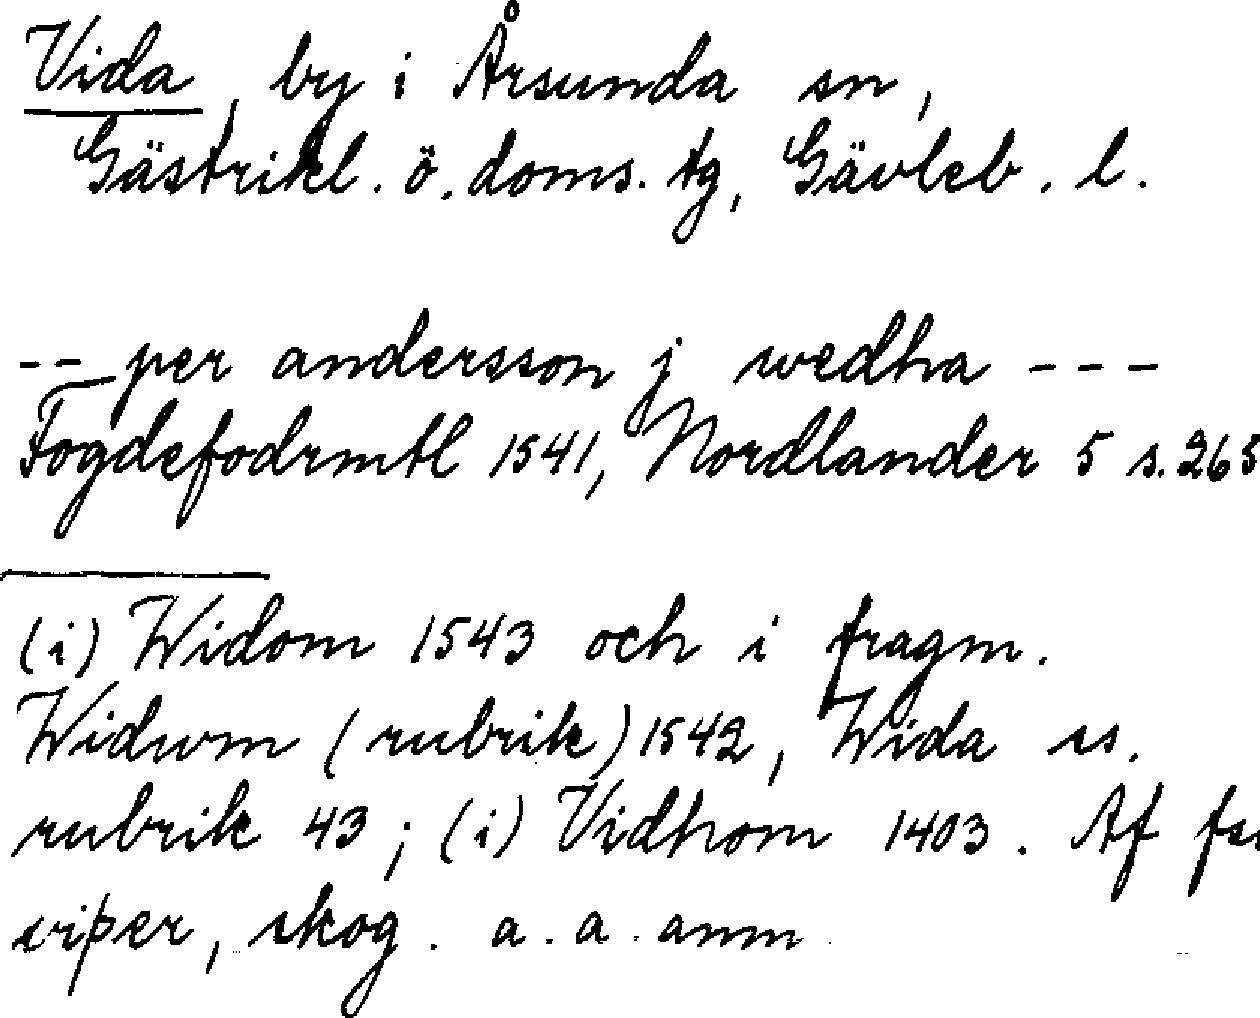 Vida, by i Årsunda sn,
Gästrikl. ö. doms. tg, Gävleb. l.
-- per andersson j wedha ---
Fogdefodrmtl 1541, Nordlander 5 s. 265
(i) Widom 1543 och i fragm.
Widum (rubrik) 1542, Wida ss.
rubrik 43; (i) Vidhom 1403. Af
viþer, skog. a. a. anm